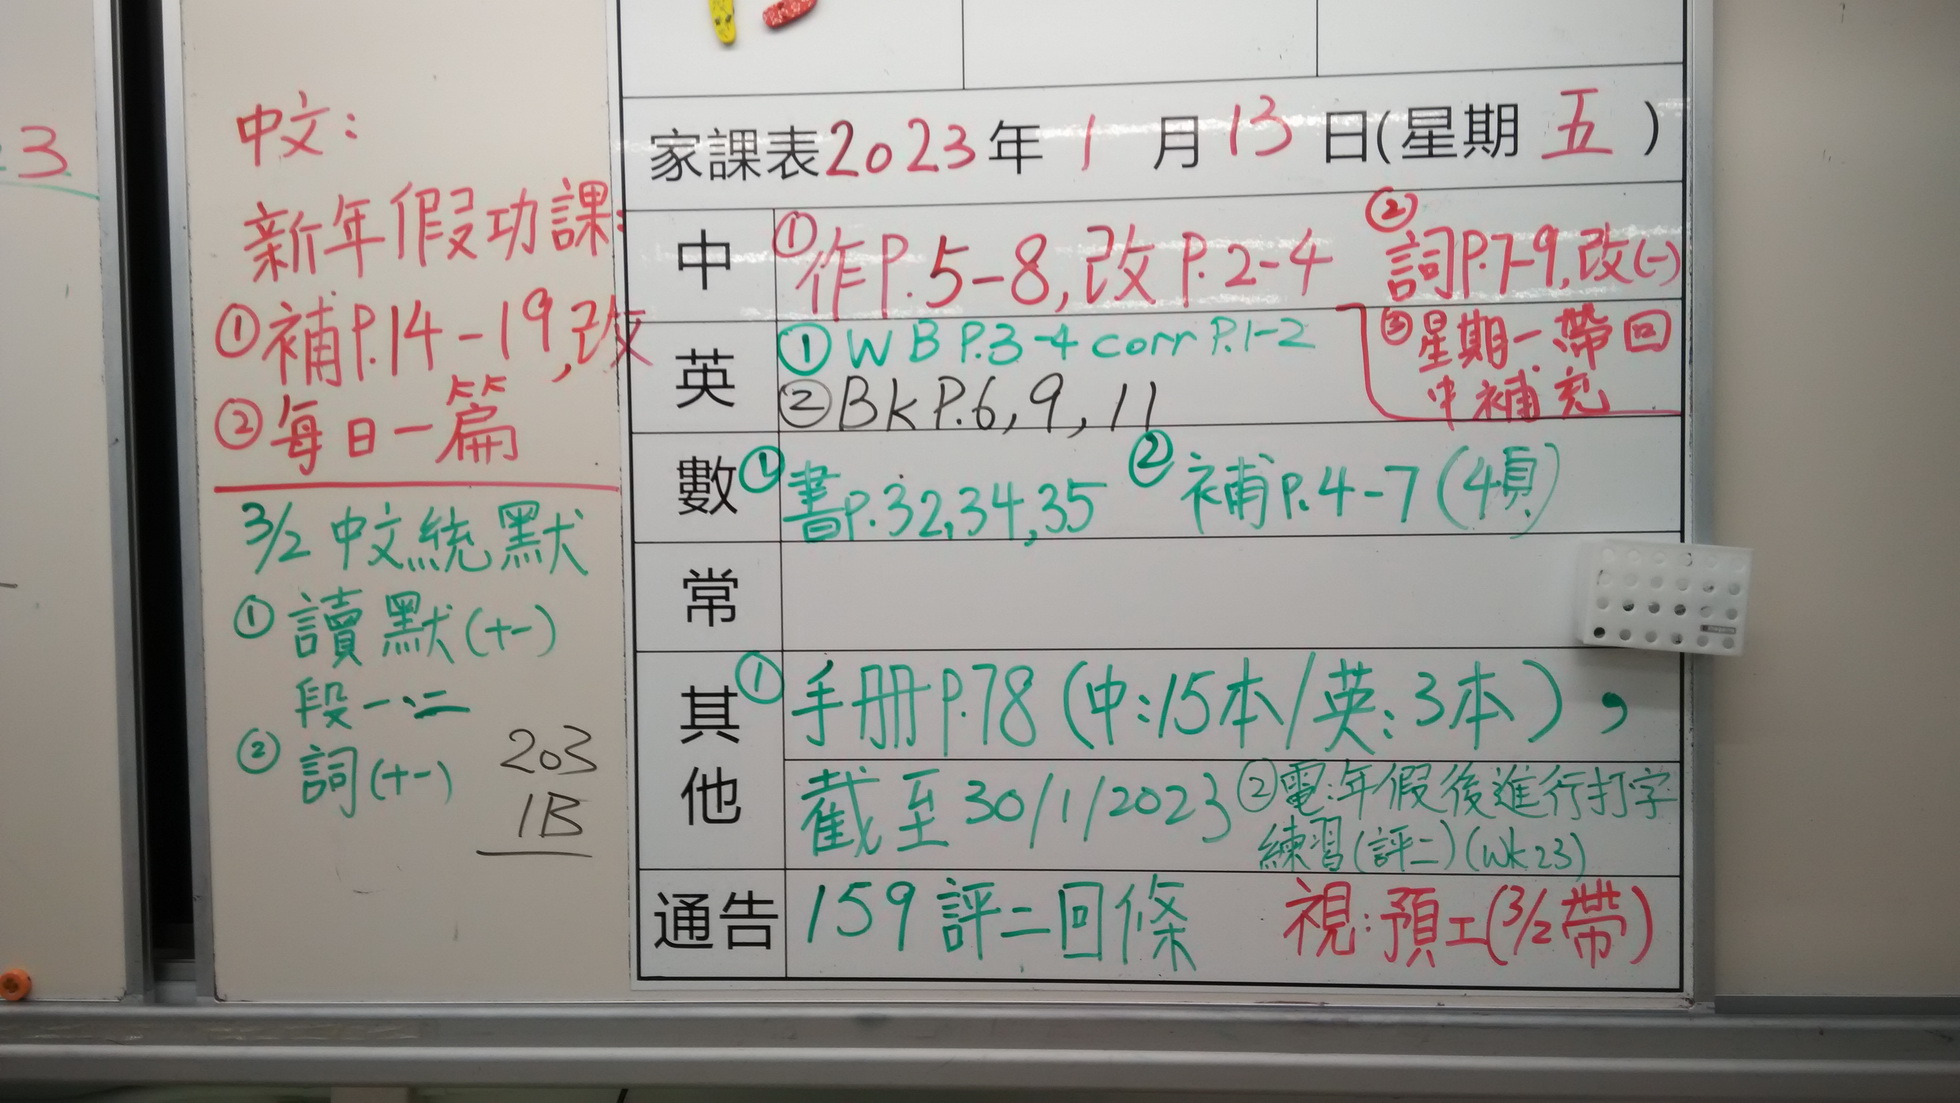 3
中文：
新年假功課：
①補P.14-19,改
②每日一篇
3/2 中文統默
①讀默(十一)
段一、二
②詞(十一)
203
1B
家課表2023年1月13日(星期五)
中 ①作P.5-8,改P.2-4 ②詞P.7-9,改(一)
③星期一帶回
中補充
英 ①WB P.3-4 corr P.1-2
②Bk P.6, 9, 11
數 ①書P.32,34,35 ②補P.4-7(4頁)
常
其他 ①手册P.78(中:15本/英:3本),
截至30/1/2023 ②電:年假後進行打字
練習(評二)(wk23)
通告 159評二回條 視:預工(3/2帶)